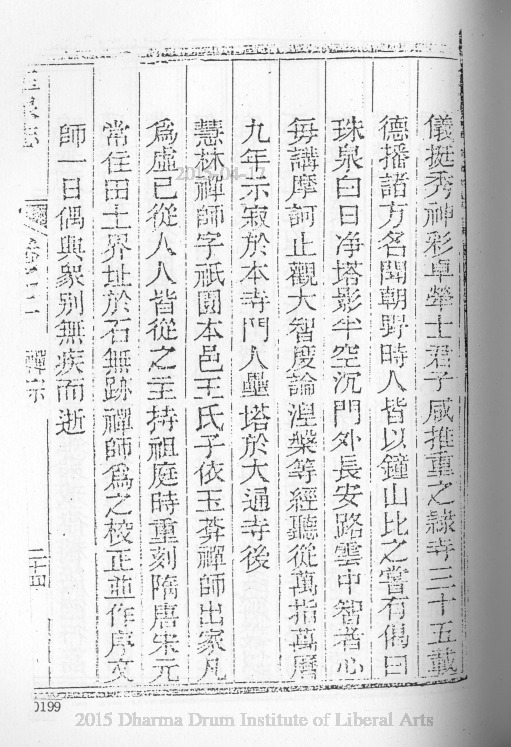 儀挺秀神彩卓犖士君子咸推重之隷寺三十五載
德播諸方名聞朝野時人皆以鐘山比之嘗有偈曰
珠泉白日净塔影半空沉門外長安路雲中智者心
每講摩訶止觀大智度論涅槃等經聽從萬指萬曆
九年示寂於本寺門人壘塔於大通寺後
慧林禪師字祇園本邑王氏子依玉芥禪師出家凡
爲虛己從人人皆從之主持祖庭時重刻隋唐宋元
常住田土界址於石無跡禪師爲之校正並作序文
師一日偶與衆别無疾而逝
泉志
卷之二
禪宗
二十四
0199
2015-04-17
2015 Dharma Drum Institute of Liberal Arts